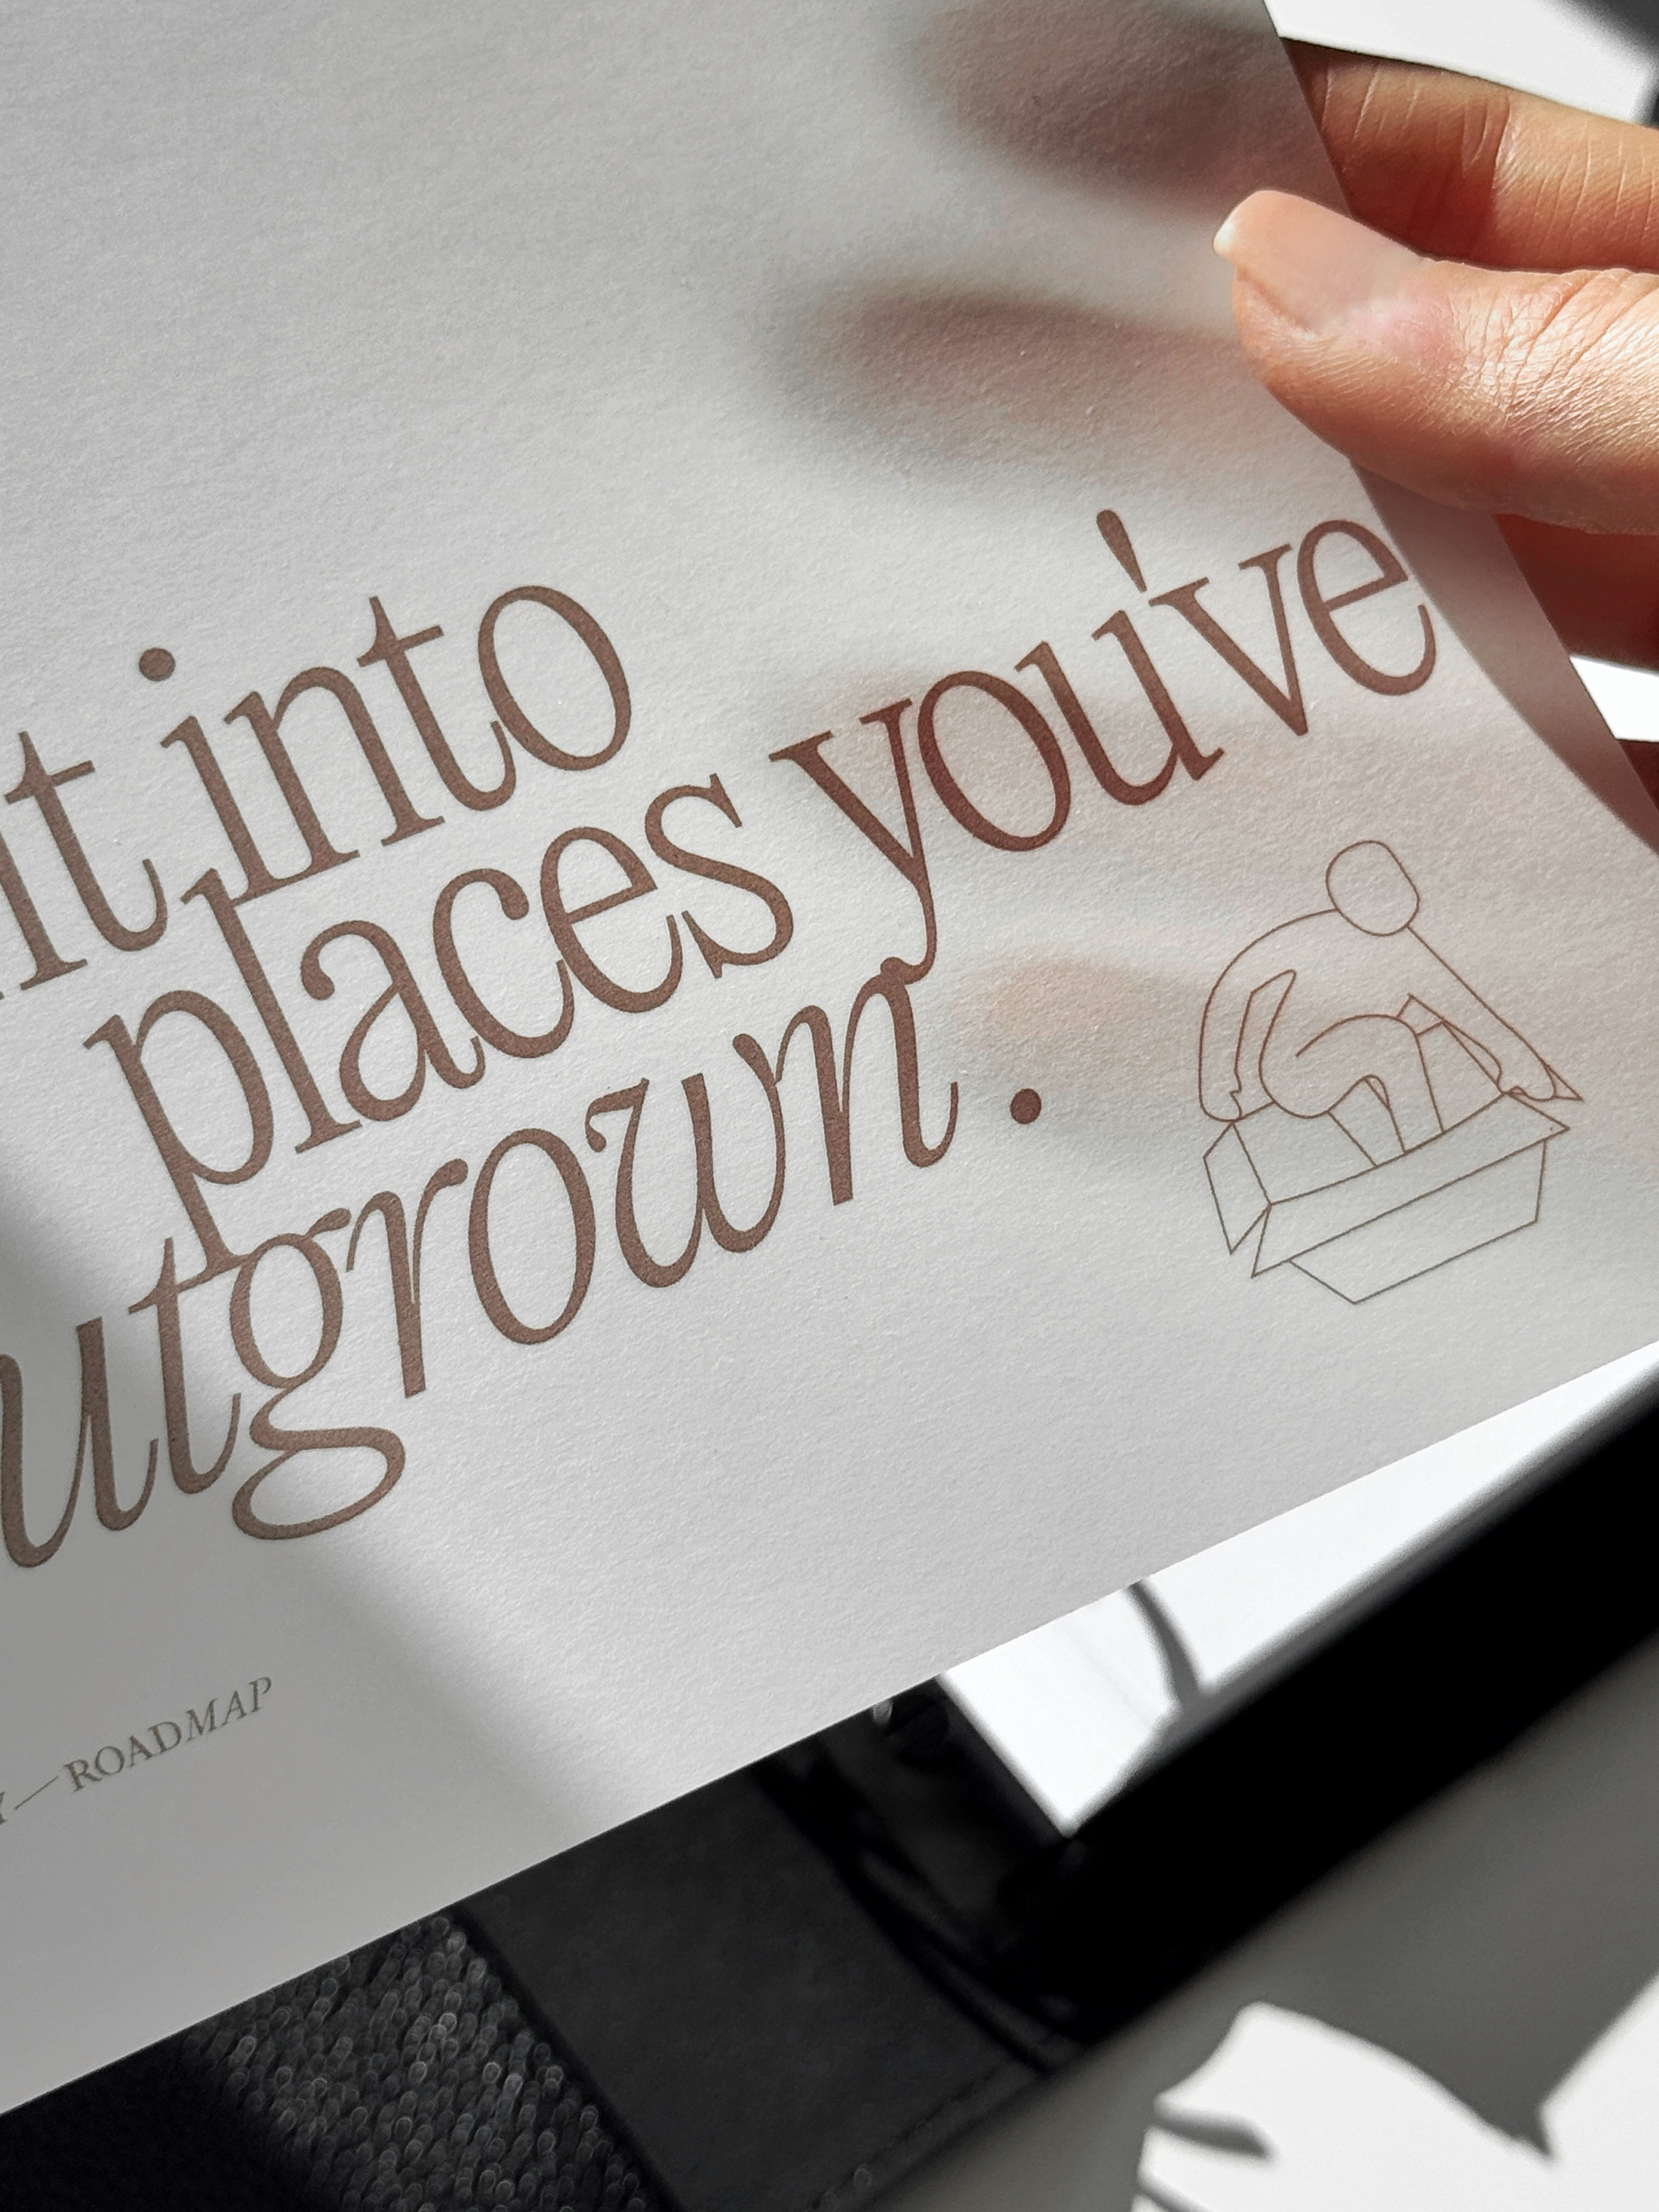 into
places you've
outgrown.
ROADMAP